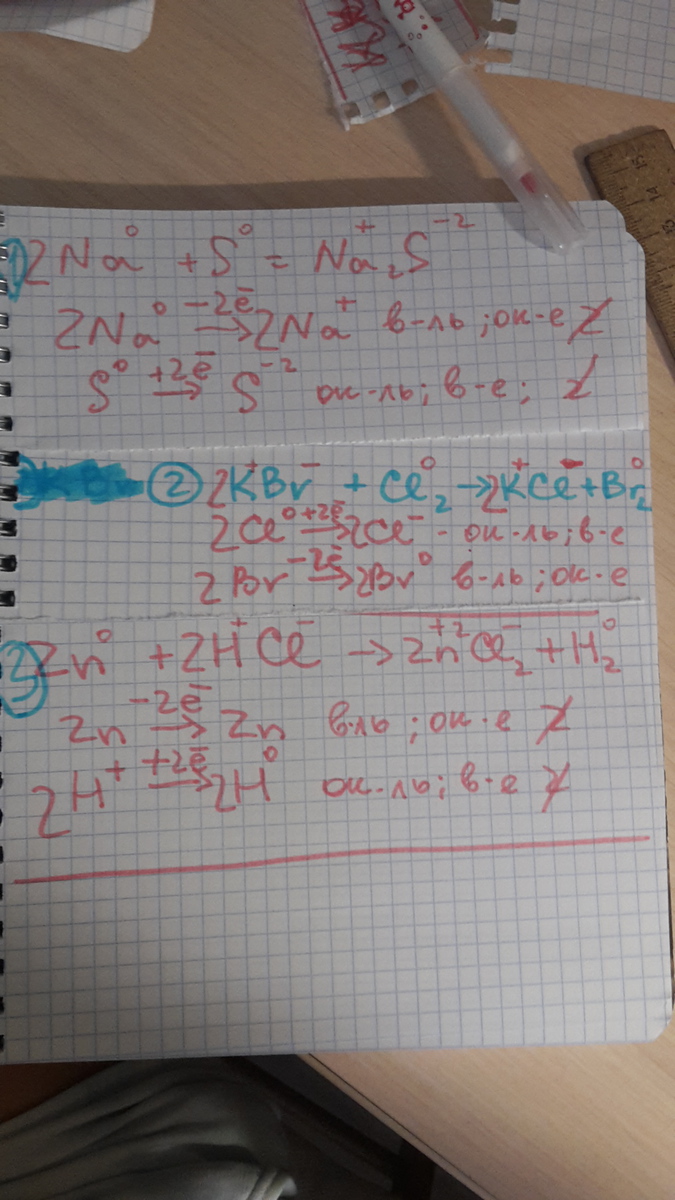 ① 2Na⁰ + S⁰ = Na⁺₂S⁻²
2Na⁰ −2ē→ 2Na⁺ в-ль; ок-е 2
S⁰ +2ē→ S⁻² ок-ль; в-е;
② 2K⁺Br⁻ + Cl⁰₂ → 2K⁺Cl⁻ + Br⁰₂
2Cl⁰ +2ē→ 2Cl⁻ - ок-ль; в-е
2Br⁻ −2ē→ 2Br⁰ в-ль; ок-е
③ Zn⁰ + 2H⁺Cl⁻ → Zn⁺²Cl⁻₂ + H⁰₂
Zn −2ē→ Zn в-ль; ок-е 2
2H⁺ +2ē→ 2H⁰ ок-ль; в-е 2
15
14
13